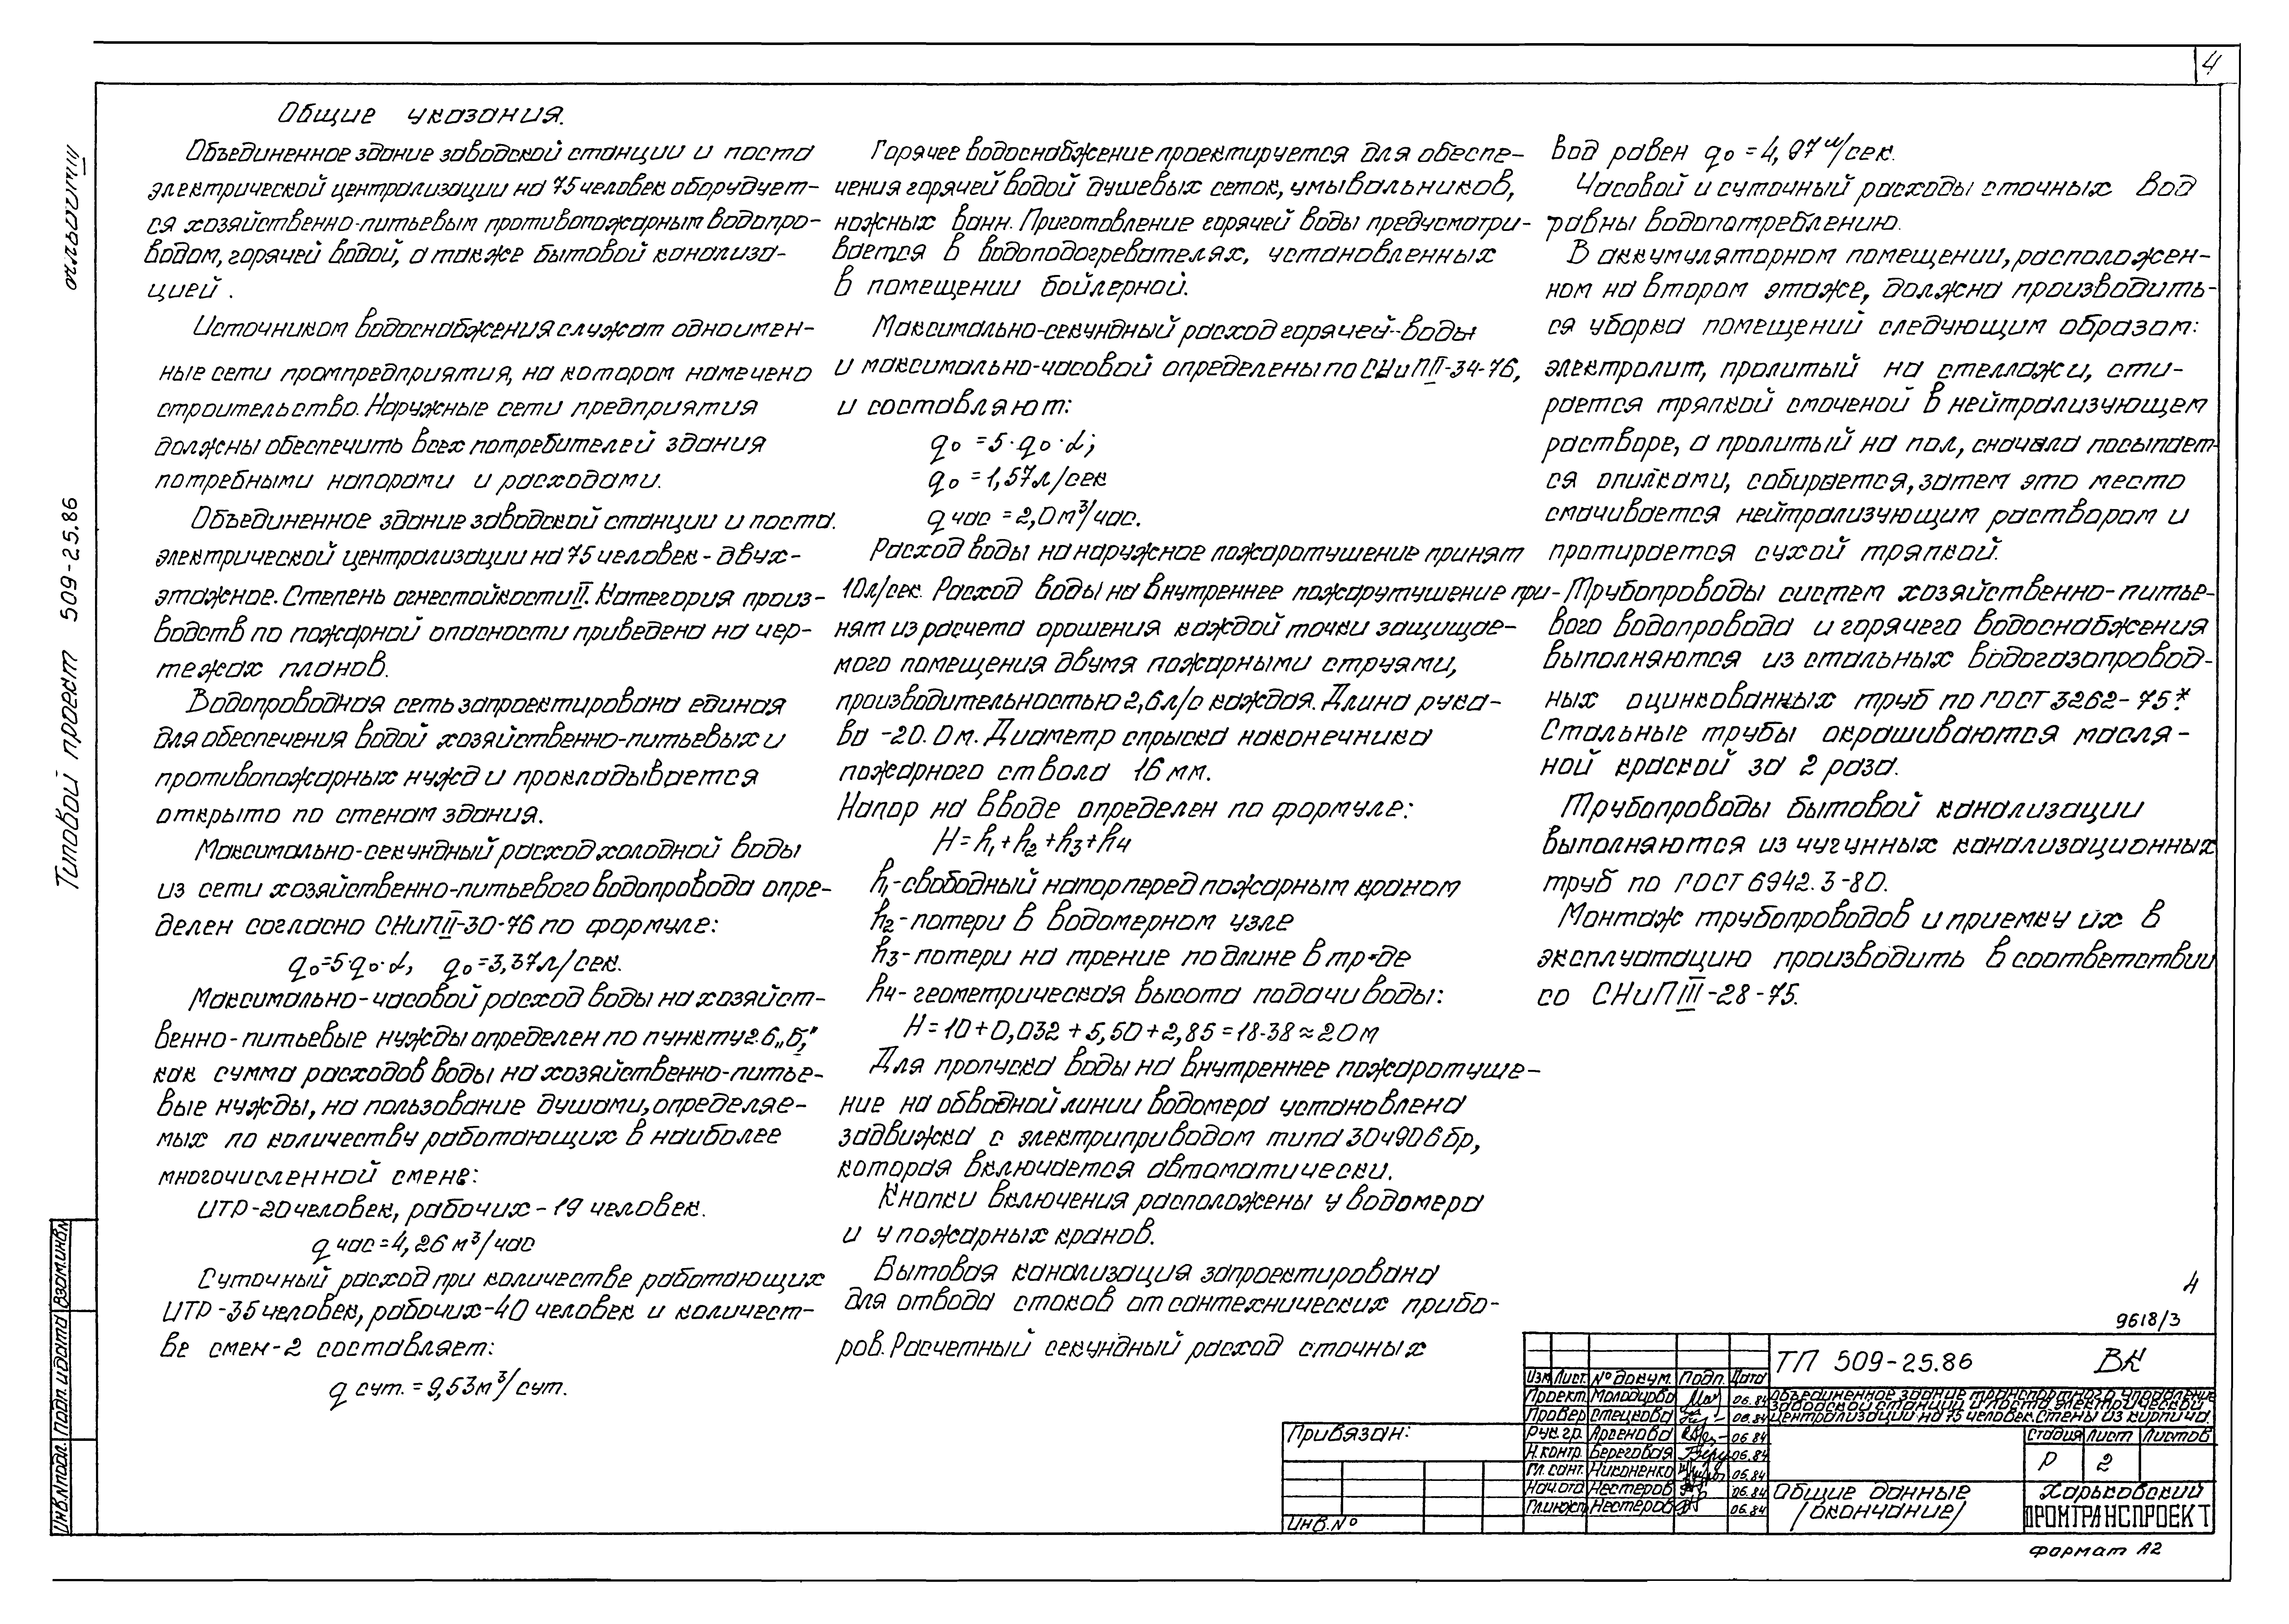 4
Общие указания.
Объединенное здание заводской станции и поста
электрической централизации на 75 человек оборудует-
ся хозяйственно-питьевым противопожарным водопро-
водом, горячей водой, а также бытовой канализа-
цией.
Источником водоснабжения служат одноимен-
ные сети промпредприятия, на котором намечено
строительство. Наружные сети предприятия
должны обеспечить всех потребителей здания
потребными напорами и расходами.
Объединенное здание заводской станции и поста
электрической централизации на 75 человек - двух-
этажное. Степень огнестойкости II. Категория произ-
водств по пожарной опасности приведена на чер-
тежах планов.
Водопроводная сеть запроектирована единая
для обеспечения водой хозяйственно-питьевых и
противопожарных нужд и прокладывается
открыто по стенам здания.
Максимально-секундный расход холодной воды
из сети хозяйственно-питьевого водопровода опре-
делен согласно СНиП II-30-76 по формуле:
q₀=5·q₀·α, q₀=3,37л/сек.
Максимально-часовой расход воды на хозяйст-
венно-питьевые нужды определен по пункту 2.6 „б",
как сумма расходов воды на хозяйственно-питье-
вые нужды, на пользование душами, определяе-
мых по количеству работающих в наиболее
многочисленной смене:
ИТР-20 человек, рабочих - 19 человек.
q час = 4,26 м³/час
Суточный расход при количестве работающих
ИТР-35 человек, рабочих-40 человек и количест-
ве смен-2 составляет:
q сут. = 9,53 м³/сут.
Горячее водоснабжение проектируется для обеспе-
чения горячей водой душевых сеток, умывальников,
ножных ванн. Приготовление горячей воды предусматри-
вается в водоподогревателях, установленных
в помещении бойлерной.
Максимально-секундный расход горячей воды
и максимально-часовой определены по СНиП II-34-76,
и составляют:
q₀ = 5·q₀·α;
q₀ = 1,57л/сек
q час = 2,0 м³/час.
Расход воды на наружное пожаротушение принят
10л/сек. Расход воды на внутреннее пожарутушение при-
нят из расчета орошения каждой точки защищае-
мого помещения двумя пожарными струями,
производительностью 2,6 л/с каждая. Длина рука-
ва -20.0м. Диаметр спрыска наконечника
пожарного ствола 16 мм.
Напор на вводе определен по формуле:
H = h₁ + h₂ + h₃ + h₄
h₁-свободный напор перед пожарным краном
h₂-потери в водомерном узле
h₃-потери на трение по длине в тр-де
h₄-геометрическая высота подачи воды:
H = 10 + 0,032 + 5,50 + 2,85 = 18.38 ≈ 20м
Для пропуска воды на внутреннее пожаротуше-
ние на обводной линии водомера установлена
задвижка с электриприводом типа 30ч906бр,
которая включается автоматически.
Кнопки включения расположены у водомера
и у пожарных кранов.
Бытовая канализация запроектирована
для отвода стоков от сантехнических прибо-
ров. Расчетный секундный расход сточных
вод равен q₀ = 4,97 л/сек.
Часовой и суточный расходы сточных вод
равны водопотреблению.
В аккумуляторном помещении, расположен-
ном на втором этаже, должна производить-
ся уборка помещений следующим образом:
электролит, пролитый на стеллажи, сти-
рается тряпкой смоченой в нейтрализующем
растворе, а пролитый на пол, сначала посыпает-
ся опилками, собирается, затем это место
смачивается нейтрализующим раствором и
протирается сухой тряпкой.
Трубопроводы систем хозяйственно-питье-
вого водопровода и горячего водоснабжения
выполняются из стальных водогазопровод-
ных оцинкованных труб по ГОСТ 3262-75*
Стальные трубы окрашиваются масля-
ной краской за 2 раза.
Трубопроводы бытовой канализации
выполняются из чугунных канализационных
труб по ГОСТ 6942.3-80.
Монтаж трубопроводов и приемку их в
эксплуатацию производить в соответствии
со СНиП III-28-75.
Типовой проект 509-25.86
Инв.№подл. Подп. и дата Взам.инв.№
4
9618/3
ТП 509-25.86 ВК
Изм Лист №докум. Подп. Дата
Объединенное здание транспортного управления
заводской станции и поста электрической
централизации на 75 человек. Стены из кирпича.
Проект. 06.84
Провер Стецкова 06.84
Рук.гр. Арсенова 06.84
Н.контр. Береговая 06.84
Гл.сант. Никоненко 06.84
Нач.отд Нестеров 06.84
Гл.инж.пр Нестеров 06.84
Привязан:
Инв.№
Стадия Лист Листов
Р 2
Общие данные
(окончание)
Харьковский
ПРОМТРАНСПРОЕКТ
Формат А2